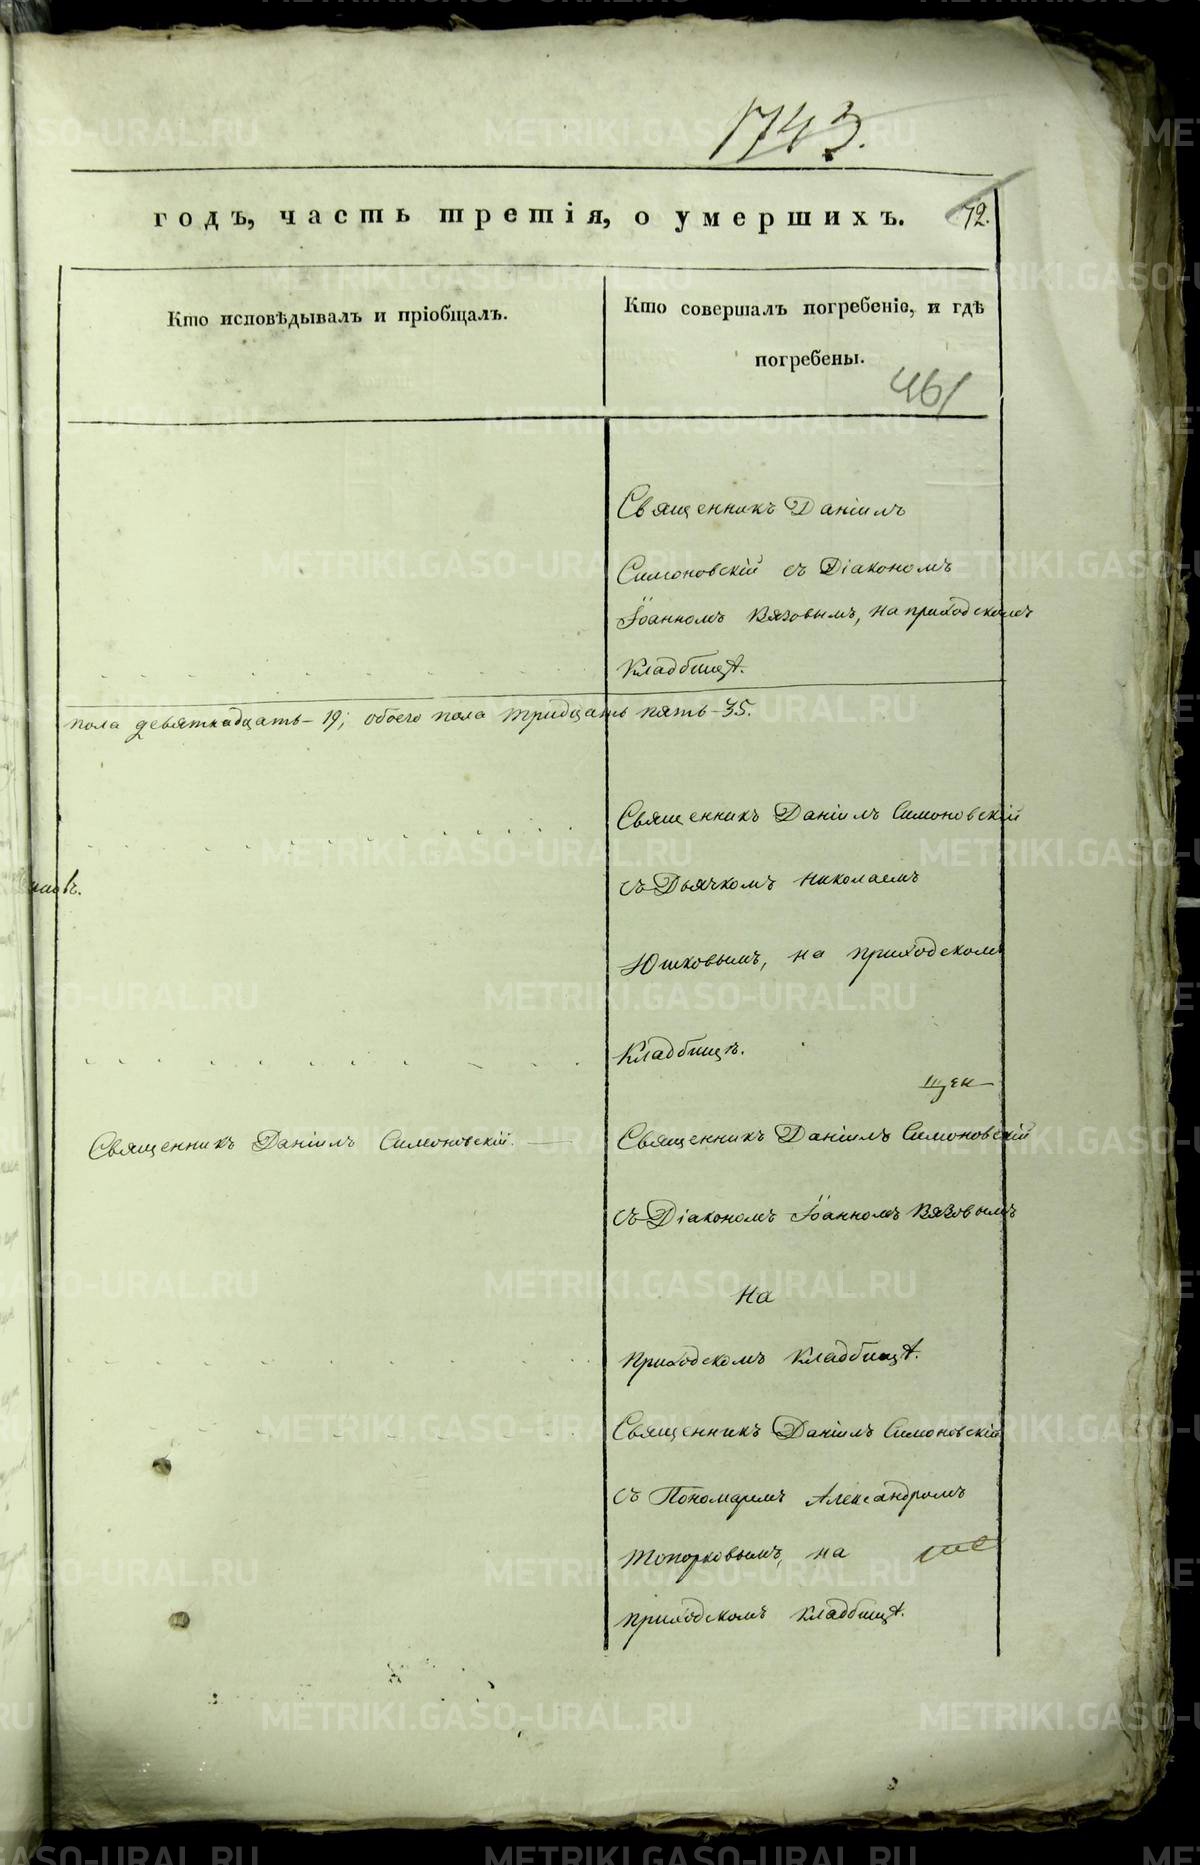 1743.
годъ, часть третія, о умершихъ.
72.
Кто исповѣдывалъ и пріобщалъ.
Кто совершалъ погребеніе, и гдѣ
погребены.
461
Священникъ Даніилъ
Симоновскій съ Діакономъ
Іоанномъ Вязовымъ, на приходскомъ
Кладбищѣ.
пола девятнадцать - 19; обоего пола тридцать пять - 35.
Священникъ Даніилъ Симоновскій
съ Дьячкомъ Николаемъ
Юшковымъ, на приходскомъ
Кладбищѣ.
щен
Священникъ Даніилъ Симоновскій.
Священникъ Даніилъ Симоновскій
съ Діакономъ Іоанномъ Вязовымъ
на
приходскомъ Кладбищѣ.
Священникъ Даніилъ Симоновскій
съ Пономаремъ Александромъ
Топорковымъ, на
приходскомъ кладбищѣ.
METRIKI.GASO-URAL.RU